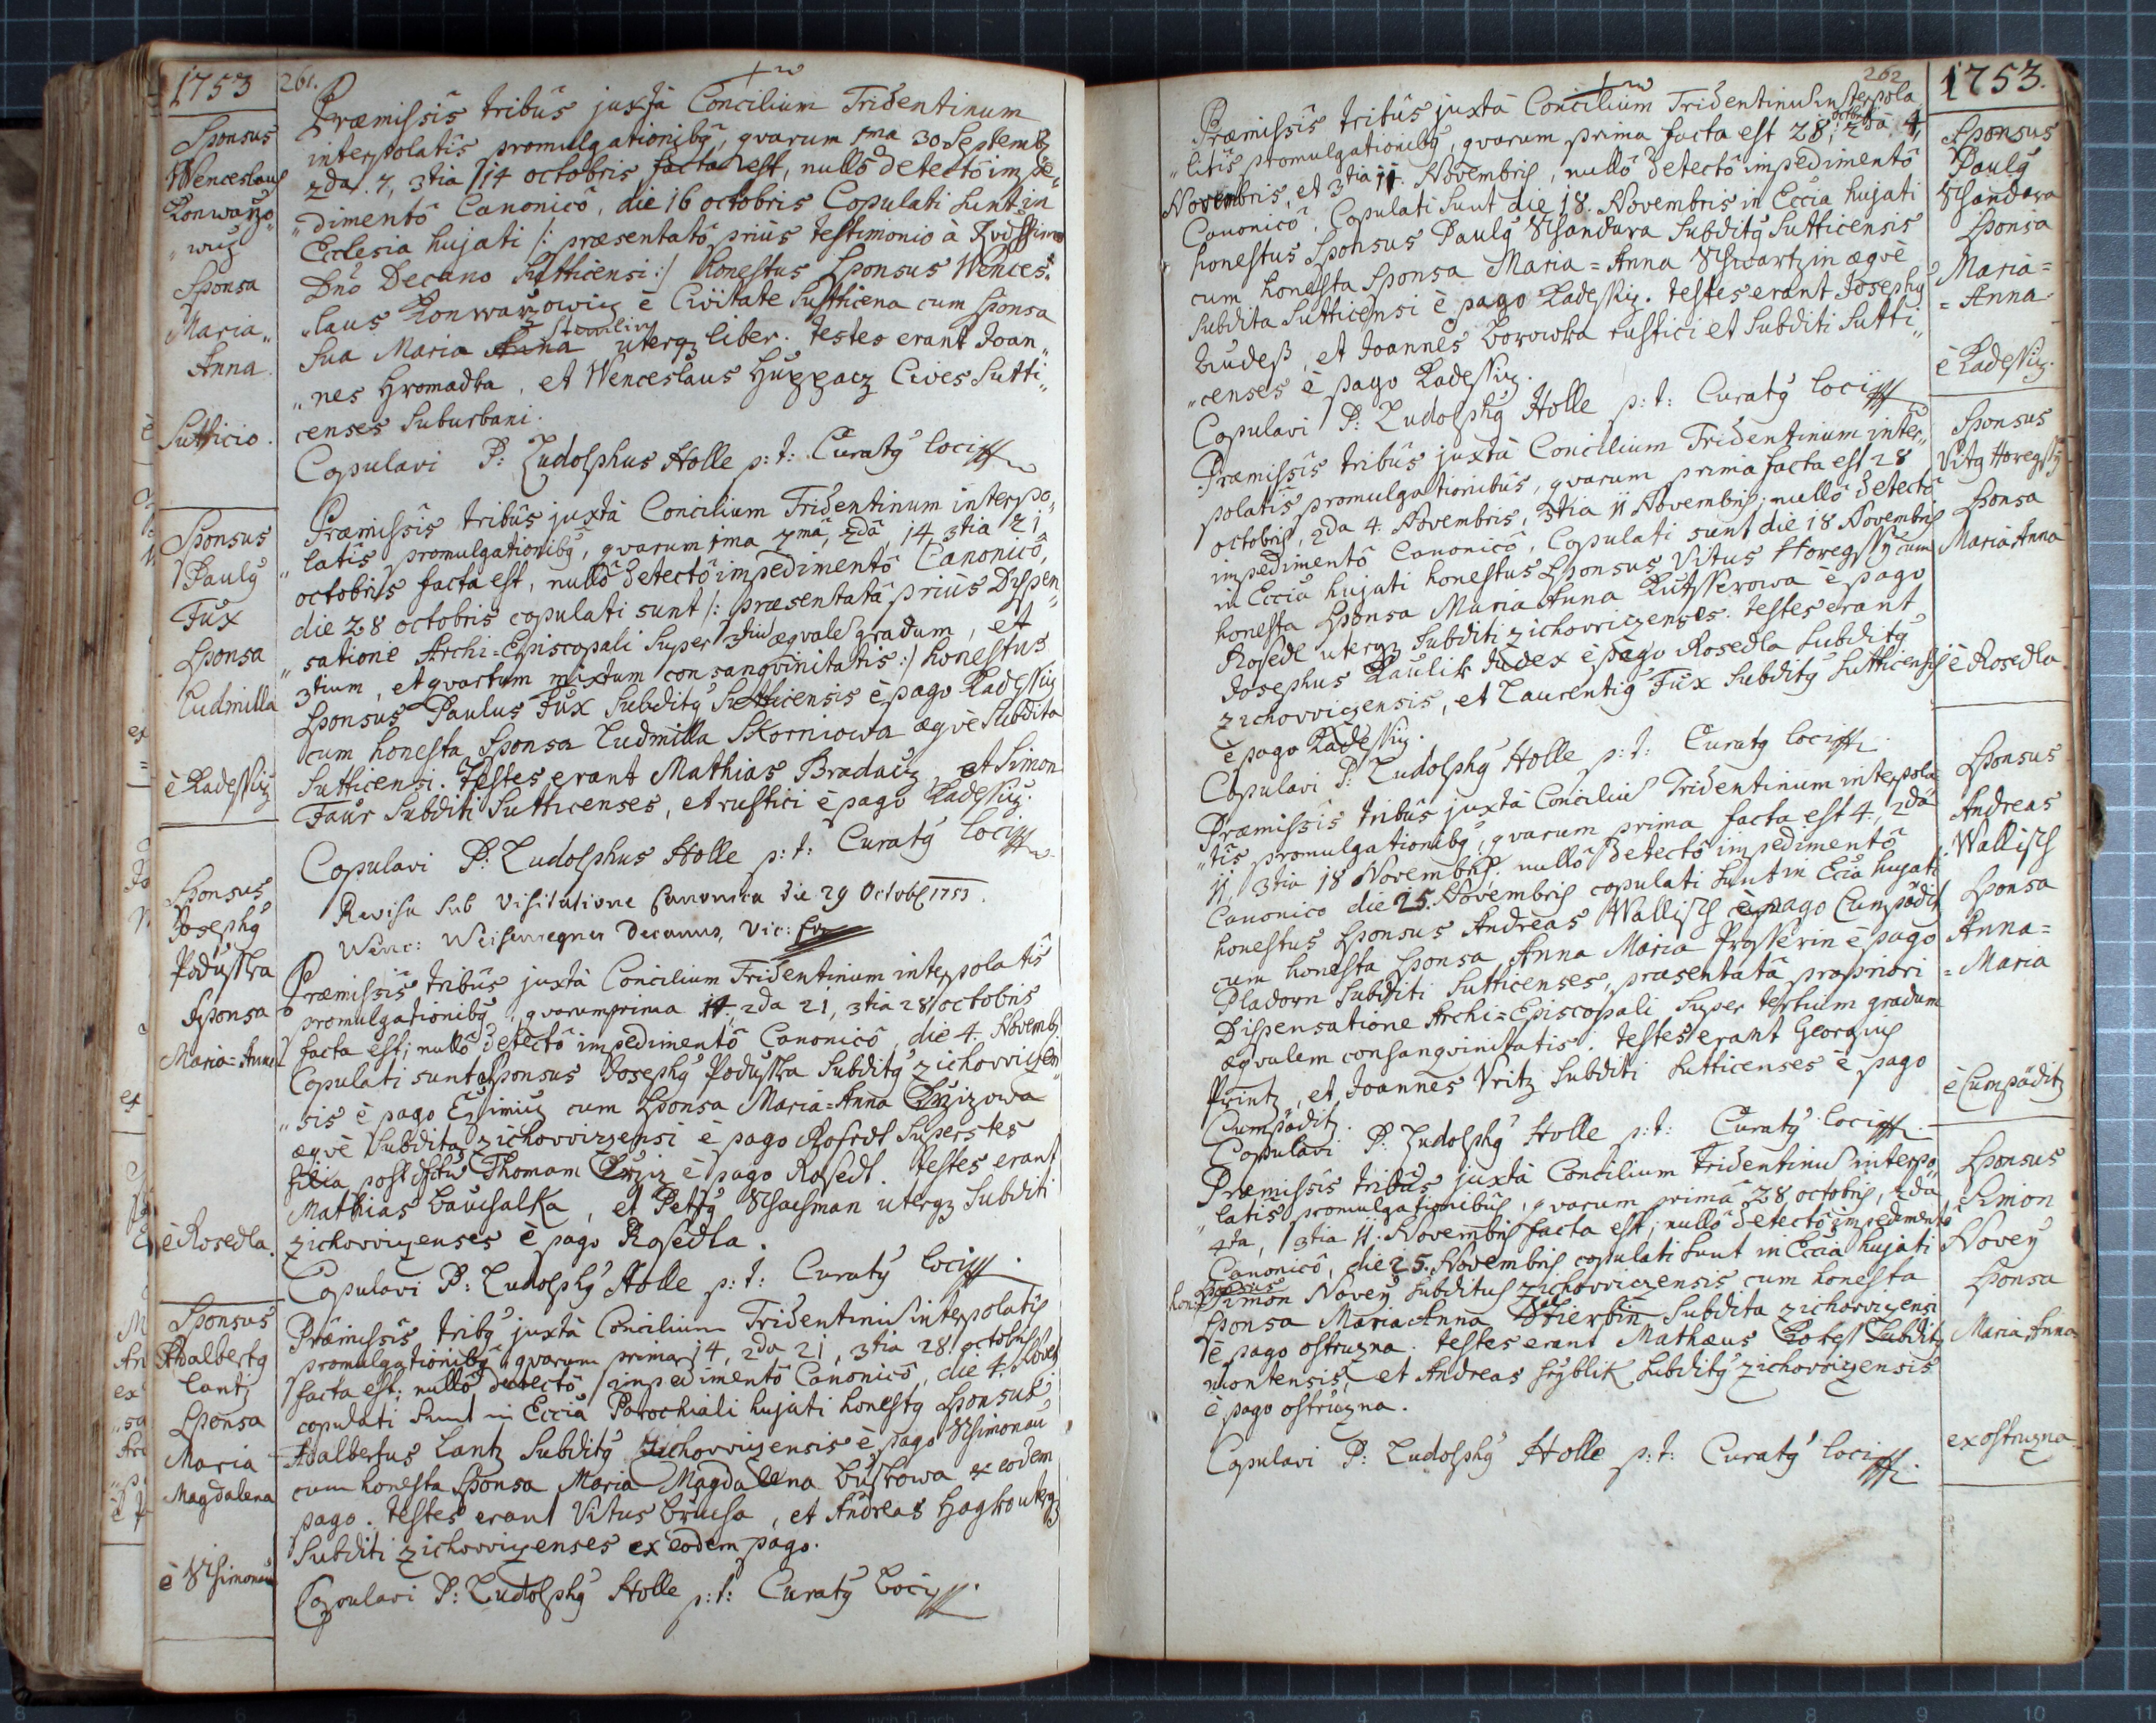 1753
261.
Sponsus
Wenceslaus
Konwarzo„
„wiz
Sponsa
Maria„
Anna.
Sutticio.
Præmissis tribûs juxtà Concilium Tridentinum
interpolatis promulgationibq, qvarum 1ma 30 Septemb
2da. 7, 3tia 14 octobris facta est, nullô detectô impe„
„dimentô Canonicô, die 16 octobris Copulati sunt in
Ecclesia hujati /: præsentatô priùs testimonio à Rvdissimo
Dnô Decano Sutticensi :/ honestus Sponsus Wences„
„laus Konwarzowiz è Civitate Sutticena cum sponsa
sua Maria Anna uterq liber. testes erant Joan„
„nes Hromadka, et Wenceslaus Huppacz Cives Sutti„
censes suburbani.
Copulavi P: Ludolphus Holle p: t: Curatq loci
Sponsus
Paulq
Fux
Sponsa
Ludmilla
è Kadessiz
Præmissis tribûs juxtà Concilium Tridentinum interpo„
„latis promulgationibq, qvarum 1ma 7mâ, 2dâ, 14 3tia 21
octobris facta est, nullô detectô impedimentô Canonicô,
die 28 octobris copulati sunt /: præsentatâ priùs Dispen„
„satione Archi=Episcopali super 3tiu æqvale gradum, et
3tium, et qvartum mixtum consangvinitatis :/ honestus
Sponsus Paulus Fux Subditq Sutticensis è pago Kadessiz
cum honesta Sponsa Ludmilla Skorniowa æqvè Subdita
Sutticensi. Testes erant Mathias Bradacz, et Simon
Faur Subditi Sutticenses, et rustici è pago Kadessiz.
Copulavi P: Ludolphus Holle p: t: Curatq loci
Revisu sub Visitatione Canonica die 29 Octobr 1753.
Wenc: Weisenregner Decanus, Vic: For
Sponsus
Josephq
Podusska
Sponsa
Maria=Anna
è Rosedla.
Præmissis tribûs juxtà Concilium Tridentinum interpolatis
promulgationibq, qvarum prima 14, 2da 21, 3tia 28 octobris
facta est; nullô detectô impedimentô Canonicô, die 4. Novemb
Copulati sunt Sponsus Josephq Podusska Subditq zichovvizen„
„sis è pago Ezimiz cum Sponsa Maria=Anna Krzizowa
æqvè Subdita zichovvizensi è pago Rosedl superstes
filia post dfctu Thomam Krziz è pago Rosedl. testes erant
Mathias Bauchalka, et Petrq Schachman uterq Subditi
zichovvizenses è pago Rosedla.
Copulavi P: Ludolphq Holle p: t: Curatq loci
Sponsus
Adalbertq
Lantz
Sponsa
Maria
Magdalena
è Schimonau
Præmissis tribq juxtà Concilium Tridentinu interpolatis
promulgationibq qvarum prima 14, 2da 21, 3tia 28 octobris
facta est; nullô detectô impedimentô Canonicô, die 4. Novem
copulati sunt in Eccia Parochiali hujati honestq Sponsus
Adalbertus Lantz Subditq zichovvizensis è pago Schimonau
cum honesta Sponsa Maria Magdalena Buskowa ex eodem
pago. testes erant Vitus Brucha, et Andreas Hagko uterq
Subditi zichovvizenses ex eodem pago.
Copulavi P: Ludolphq Holle p: t: Curatq Loci
262
1753.
Præmissis tribûs juxtà Concilium Tridentinu interpola
„litis promulgationibq, qvarum prima facta est 28 octobris; 2dâ 4,
Novembris, et 3tia 11. Novembris, nullô detectô impedimentô
Canonicô, Copulati sunt die 18. Novembris in Eccia hujati
honestus Sponsus Paulq Schandara Subditq Sutticensis
cum honesta Sponsa Maria=Anna Schwartzin æqvè
Subdita Sutticensi è pago Kadessiz. testes erant Josephq
Judess, et Joannes Borowka rustici et Subditi Sutti„
„censes è pago Kadessiz.
Copulavi P: Ludolphq Holle p: t: Curatq loci
Sponsus
Paulq
Schandara
Sponsa
Maria=
=Anna
è Kadessiz.
Præmissis tribûs juxtà Concilium Tridentinum inter„
polatis promulgationibus, qvarum prima facta est 28
octobris, 2da 4. Novembris, 3tia 11 Novembris; nullô detectô
impedimentô Canonicô, Copulati sunt die 18 Novembris
in Eccia hujati honestus Sponsus Vitus Horegssy cum
honesta Sponsa Maria Anna Kutsserowa è pago
Rosedl uterq Subditi zichovvizenses. testes erant
Josephus Kaulik Judex è pago Rosedla Subditq
zichovvizensis, et Laurentiq Fux Subditq Sutticensis
è pago Kadessiz.
Copulavi P: Ludolphq Holle p: t: Curatq loci
Sponsus
Vitq Horegssy
Sponsa
Maria Anna
è Rosedla
Præmissis tribûs juxtà Conciliu Tridentinum interpola
„tis promulgationibq, qvarum prima facta est 4., 2dâ
11, 3tia 18 Novembris. nullô detectô impedimentô
Canonico die 25. Novembris copulati sunt in Ecia hujati
honestus Sponsus Andreas Wallisch è pago Cumpädit
cum honesta Sponsa Anna Maria Prosserin è pago
Pladorn Subditi Sutticenses, præsentatâ præpriori
Dispensatione Archi=Episcopali super tertium gradum
æqvalem consangvinitatis; testes erant Georgius
Printz, et Joannes Vritz Subditi Sutticenses è pago
Cumpäditz.
Copulavi P: Ludolphq Holle p: t: Curatq loci
Sponsus
Andreas
Wallisch
Sponsa
Anna=
=Maria
è Cumpäditz
Præmissis tribûs juxtà Concilium tridentinu interpo„
„latis promulgationibus, qvarum primâ 28 octobris, 2da
4ta, 3tia 11. Novembris facta est; nullô detectô impedimentô
Canonicô, die 25. Novembris copulati sunt in Eccia hujati
honest Sponsus Simon Novey Subditus zichovviczensis cum honesta
Sponsa Maria Anna Stierbin Subdita zichovvizensi
è pago ostruzna. testes erant Mathæus Botess Subditq
montensis, et Andreas Hryblik Subditq zichovvizensis
è pago ostruzna.
Copulavi P: Ludolphq Holle p: t: Curatq loci
Sponsus
Simon
Novey
Sponsa
Maria Anna
ex ostruzna